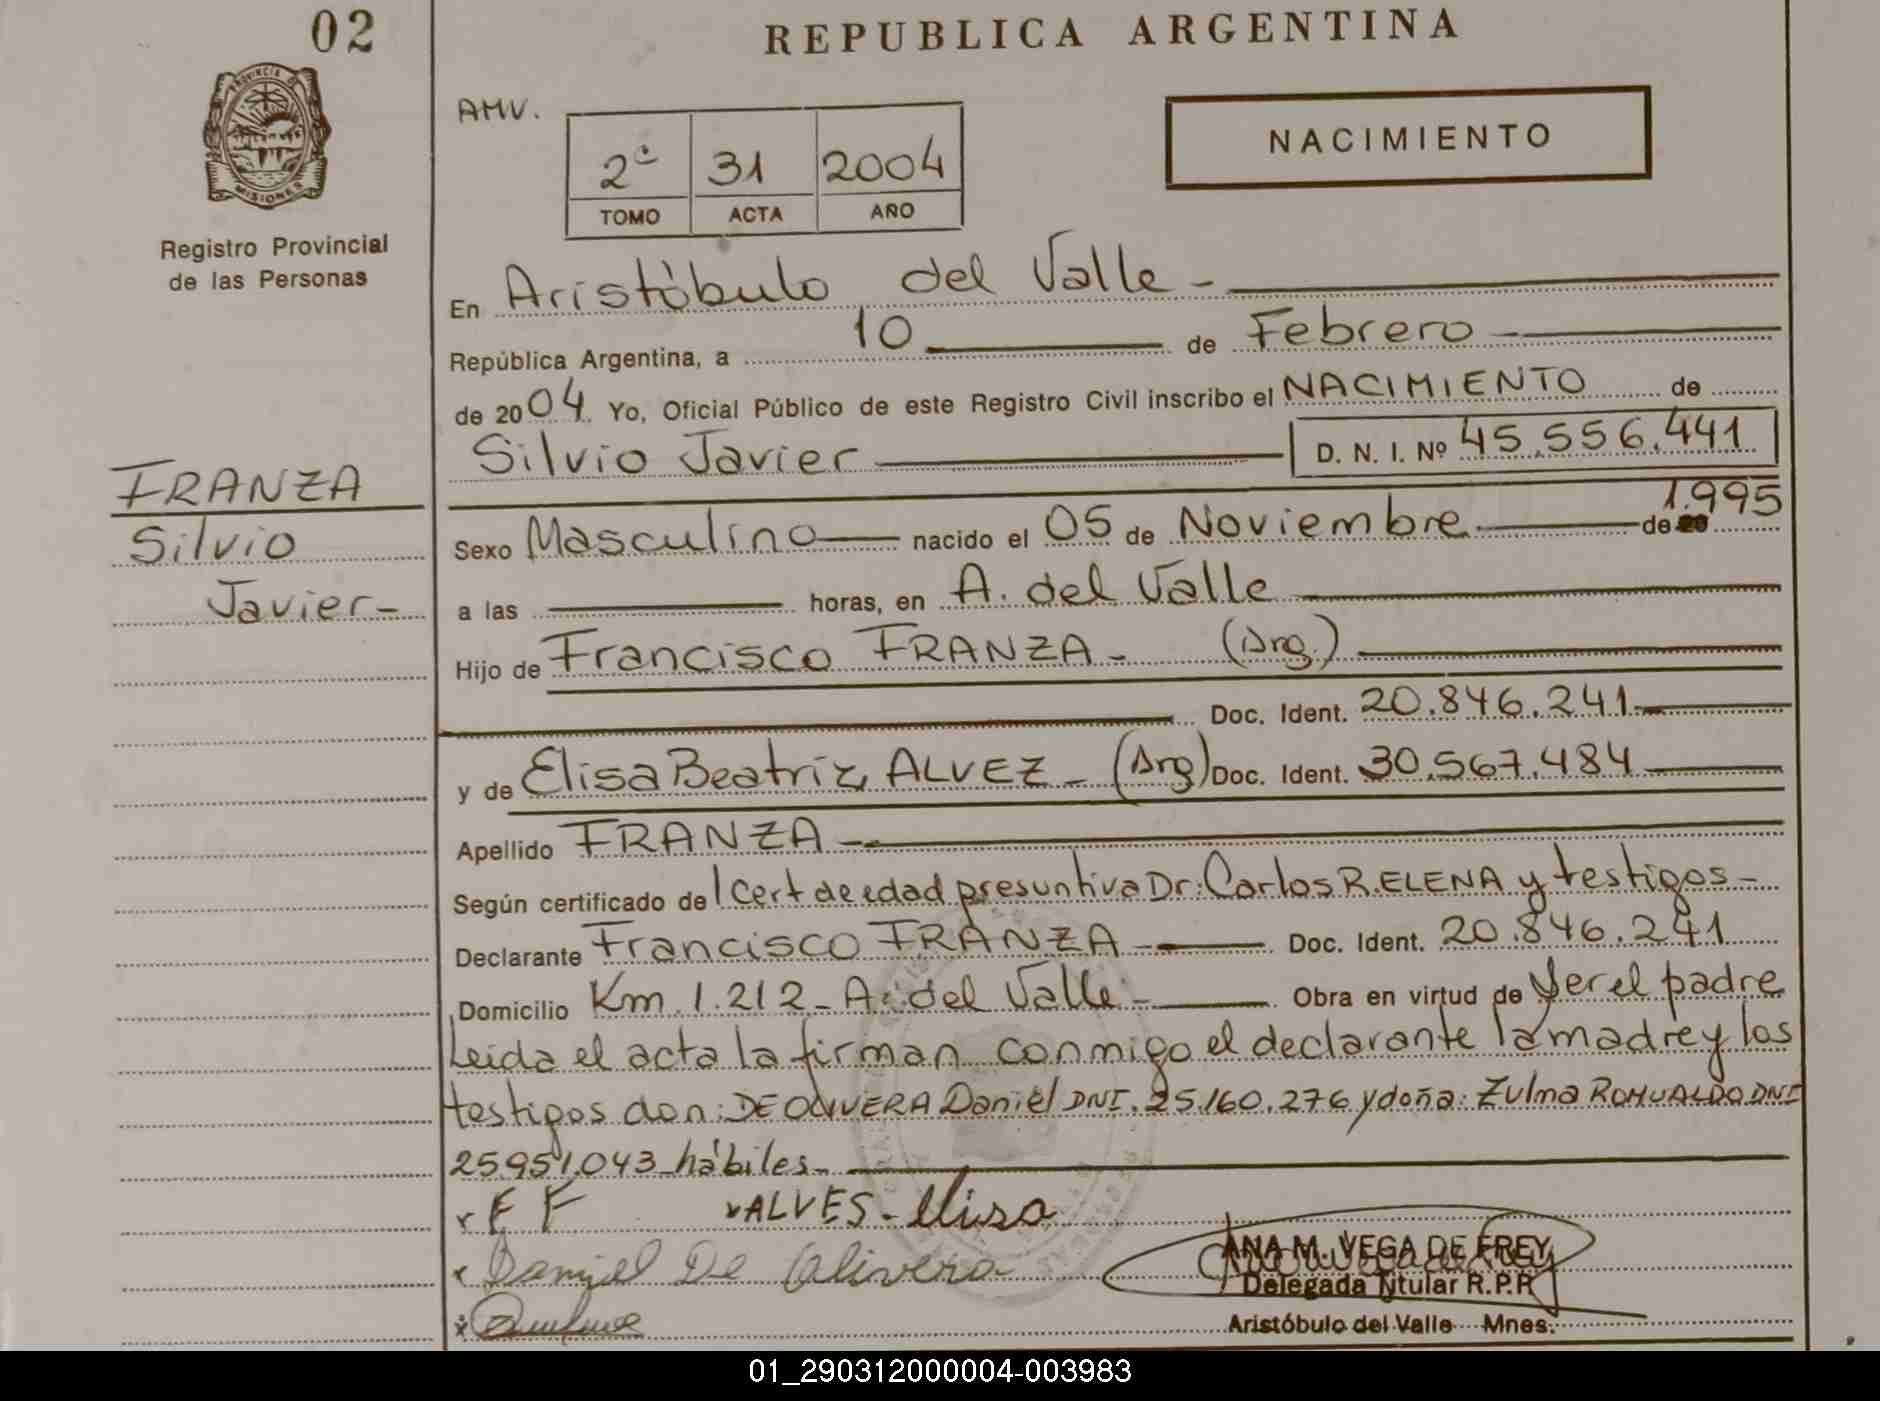 02
REPUBLICA ARGENTINA
PROVINCIA DE
MISIONES
Registro Provincial
de las Personas
AMV.
2º 31 2004
TOMO ACTA AÑO
NACIMIENTO
En Aristóbulo del Valle -
República Argentina, a 10 de Febrero
de 2004. Yo, Oficial Público de este Registro Civil inscribo el NACIMIENTO de
Silvio Javier D. N. I. Nº 45.556.441
FRANZA
Silvio
Javier -
Sexo Masculino nacido el 05 de Noviembre de 1.995
a las horas, en A. del Valle
Hijo de Francisco FRANZA - (Arg.)
Doc. Ident. 20.846.241
y de Elisa Beatriz ALVEZ - (Arg) Doc. Ident. 30.567.484
Apellido FRANZA -
Según certificado de 1 Cert de edad presuntiva Dr: Carlos R. ELENA y testigos -
Declarante Francisco FRANZA - Doc. Ident. 20.846.241
Domicilio Km 1.212 - A. del Valle - Obra en virtud de Ser el padre
Leida el acta la firman conmigo el declarante la madre y los
testigos don: DE OLIVERA Daniel DNI. 25.160.276 y doña: Zulma ROMUALDO DNI
25.951.043 hábiles -
x F F x ALVES - Elisa
x Daniel De Olivera
ANA M. VEGA DE FREY
Delegada Titular R.P.P.
Aristóbulo del Valle Mnes.
01_290312000004-003983